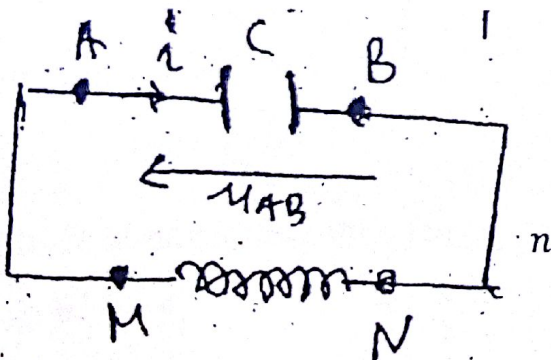 A i C B
u_AB
n
M N